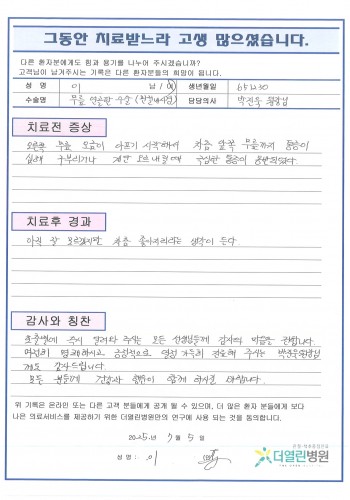 그동안 치료받느라 고생 많으셨습니다.
다른 환자분에게도 힘과 용기를 나누어 주시겠습니까?
고객님이 남겨주시는 기록은 다른 환자분들의 희망이 됩니다.
성 명 이 남 / 여 생년월일 651230
수술명 무릎 연골판 수술 담당의사 박진욱 원장님
치료전 증상
오른쪽 무릎 오금이 아프기 시작해서 차츰 앞쪽 무릎까지 통증이
심해 구부리거나 계단 오르내릴때 극심한 통증이 동반되었다.
치료후 경과
아직 잘 모르겠지만 차츰 좋아지리라는 생각이 든다.
감사와 칭찬
호출벨에 즉시 달려와 주시는 모든 선생님들께 감사의 말씀을 전합니다.
친절하시고 긍정적으로 열정 가득히 진료해 주시는 박진욱원장님
께도 감사드립니다.
모든 분들께 건강과 행복이 함께 하시길 바랍니다.
위 기록은 온라인 또는 다른 고객 분들에게 공개 될 수 있으며, 더 많은 환자 분들에게 보다
나은 의료서비스를 제공하기 위한 더열린병원만의 연구에 사용 되는 것을 동의합니다.
2025년 7월 5일
성 명 : 이
더열린병원